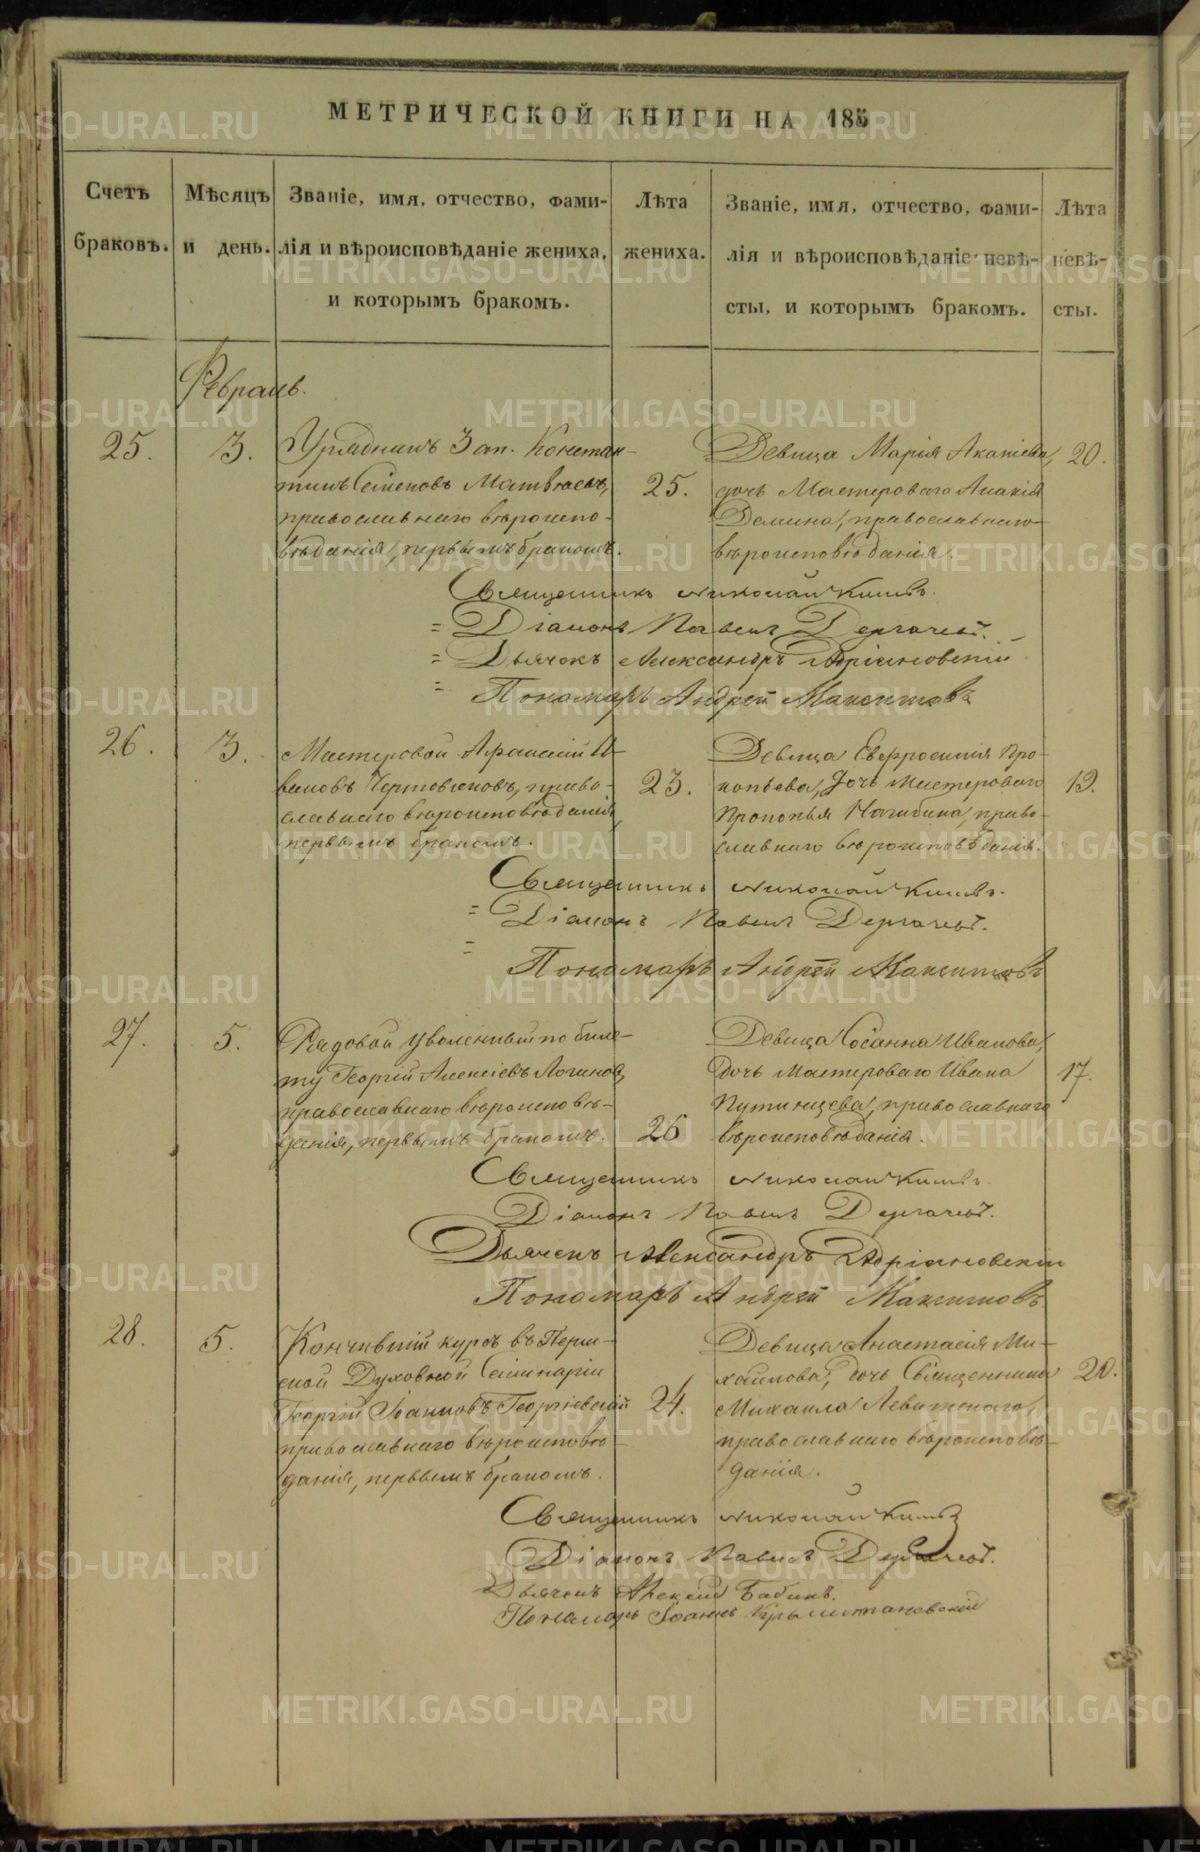 МЕТРИЧЕСКОЙ КНИГИ НА 185
Счетъ браковъ.
Мѣсяцъ и день.
Званіе, имя, отчество, фами-
лія и вѣроисповѣданіе жениха,
и которымъ бракомъ.
Лѣта
жениха.
Званіе, имя, отчество, фами-
лія и вѣроисповѣданіе невѣ-
сты, и которымъ бракомъ.
Лѣта
невѣ-
сты.
Февраль.
25.
3.
Урядникъ Зап. Констан-
тинъ Семеновъ Матвѣевъ,
православнаго вѣроиспо-
вѣданія, первымъ бракомъ.
25.
Девица Марія Акакіева,
дочь Мастероваго Акакія
Демина, православнаго
вѣроисповѣданія.
20.
Священникъ Николай
= Діаконъ Павелъ Дергачевъ.
= Дьячокъ Александръ Адріановскій
= Пономарь Андрей Максимовъ
26.
3.
Мастеровой Афанасій И-
вановъ православ-
славнаго вѣроисповѣданія
первымъ бракомъ.
23.
Девица Евфросинія Про-
копьева, дочь Мастероваго
Прокопья Нагибина, право-
славнаго вѣроисповѣданія.
19.
Священникъ Николай
= Діаконъ Павелъ Дергачевъ.
=
Пономарь Андрей Максимовъ
27.
5.
Рядовой уволенный по биле-
ту Георгій Алексіевъ Логиновъ,
православнаго вѣроисповѣ-
данія, первымъ бракомъ.
26
Девица Сосанна Иванова,
дочь Мастероваго Ивана
Путинцева, православнаго
вѣроисповѣданія.
17.
Священникъ Николай
Діаконъ Павелъ Дергачевъ.
Дьячекъ Александръ Адріановскій
Пономарь Андрей Максимовъ
28.
5.
Кончившій курсъ въ Перм-
ской Духовной Семинаріи
Георгій Іоанновъ Георгіевскій
православнаго вѣроисповѣ-
данія, первымъ бракомъ.
24.
Девица Анастасія Ми-
хаилова, дочь Священника
Михаила Левитскаго,
православнаго вѣроисповѣ-
данія.
20.
Священникъ Николай
Діаконъ Павелъ Дергачевъ.
Дьячекъ Алексій Бабинъ.
Пономарь Іоаннъ
METRIKI.GASO-URAL.RU